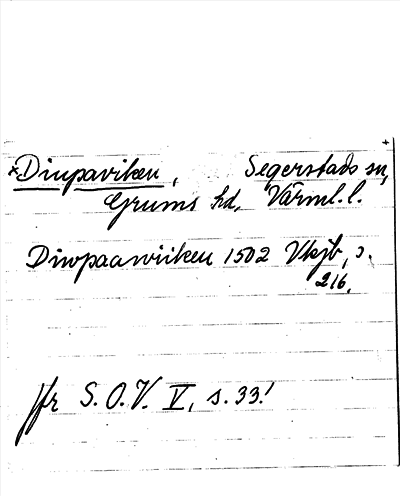 *Diupaviken, Segerstads sn,
Grums hd, Värml. l.
Diwpaawiiken 1502 Vkjb, s.
216.
Jfr S.O.V. V, s. 33!